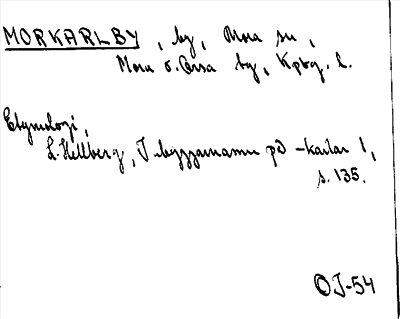 MORKARLBY, by, Mora sn,
Mora o. Orsa tg, Kpbg. l.
Etymologi,
L. Hellberg, T byggnamn på -karlar 1,
s. 135.
OJ-54